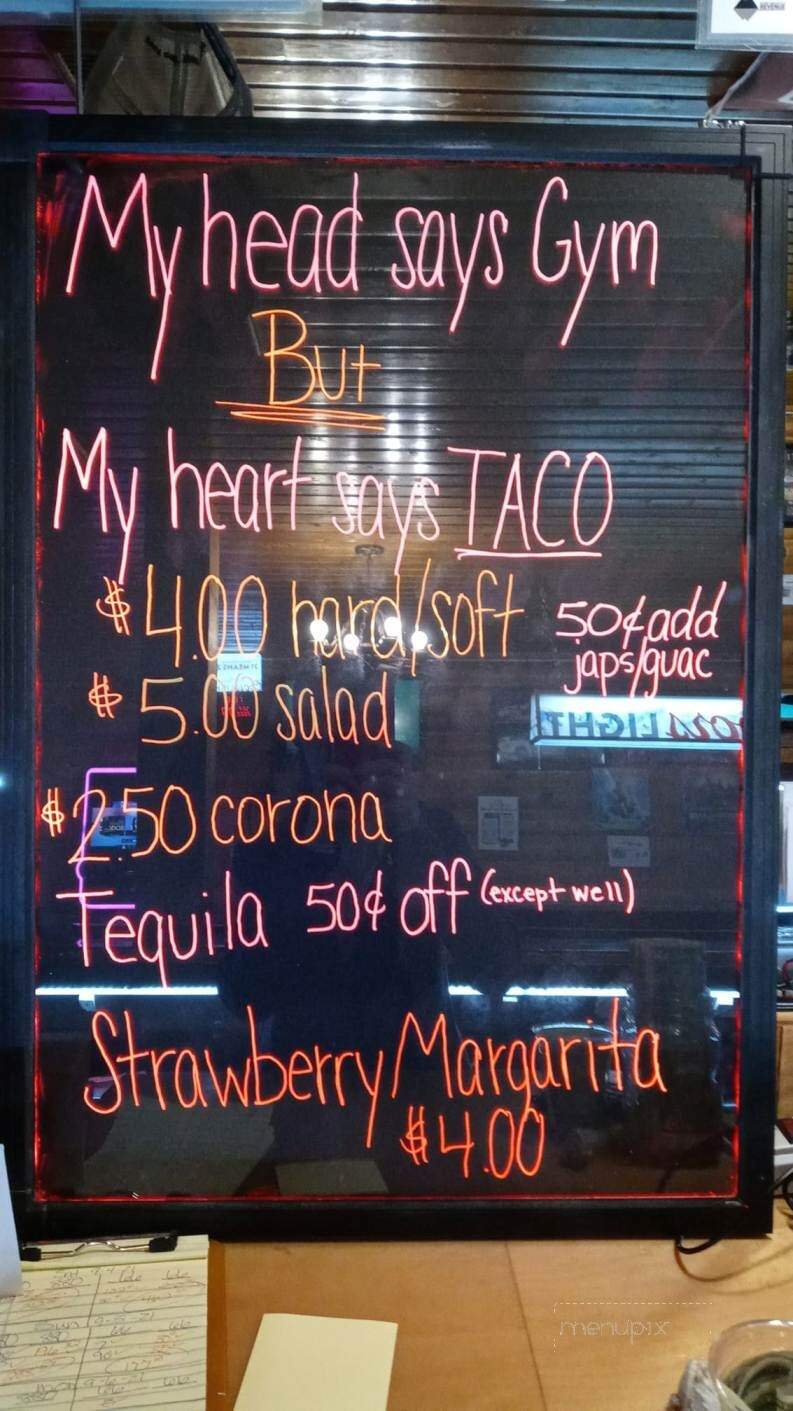 REVENUE
My head says Gym
But
My heart says TACO
$4.00 hard/soft
50¢ add
japs/guac
$5.00 salad
$2.50 corona
Tequila 50¢ off (except well)
Strawberry Margarita
$4.00
menupix